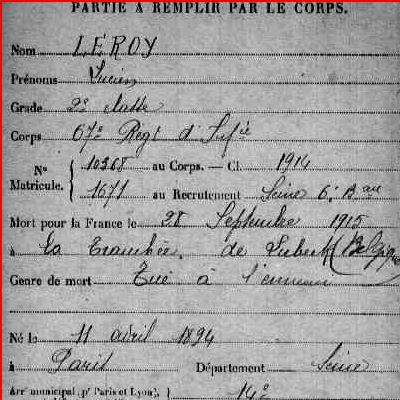 PARTIE À REMPLIR PAR LE CORPS.
Nom LEROY
Prénoms Lucien
Grade 2e classe
Corps 67e Régt d'Infie
Nos Matricule. { 10368 au Corps. — Cl. 1914
1671 au Recrutement Seine 6e Bau
Mort pour la France le 28 Septembre 1915
à La Tranchée de (Belgique
Genre de mort Tué à l'ennemi
Né le 11 avril 1894
à Paris Département Seine
Arrt municipal (pr Paris et Lyon), } 14e